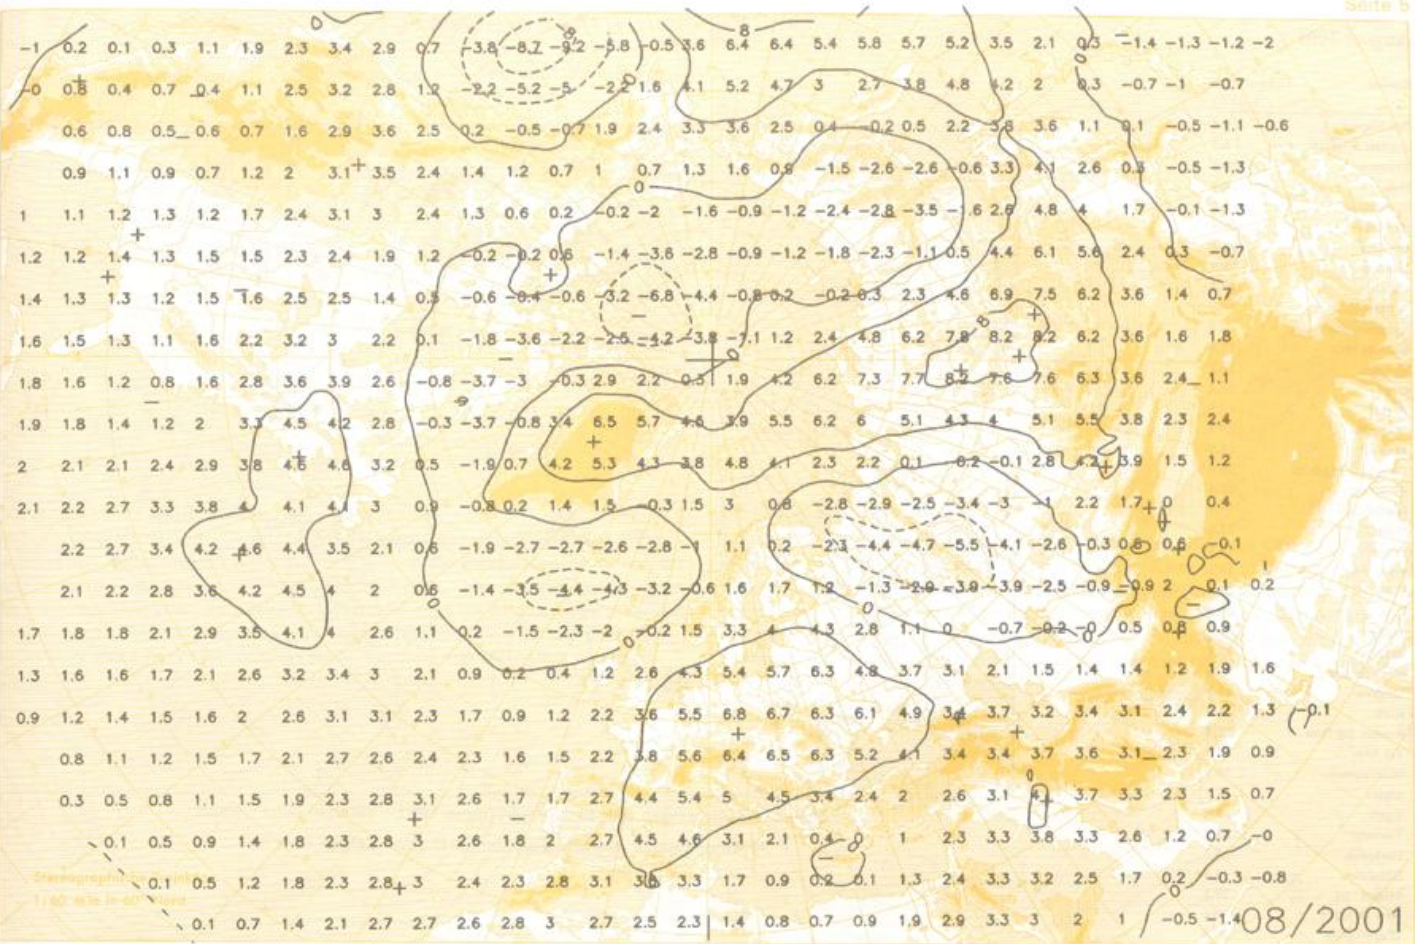 Seite 5
-1 0.2 0.1 0.3 1.1 1.9 2.3 3.4 2.9 0.7 -3.8 -8.7 -9.2 -5.8 -0.5 3.6 6.4 6.4 5.4 5.8 5.7 5.2 3.5 2.1 0.3 -1.4 -1.3 -1.2 -2
-0 0.8 0.4 0.7 0.4 1.1 2.5 3.2 2.8 1.2 -2.2 -5.2 -5 -2.2 1.6 4.1 5.2 4.7 3 2.7 3.8 4.8 4.2 2 0.3 -0.7 -1 -0.7
0.6 0.8 0.5 0.6 0.7 1.6 2.9 3.6 2.5 0.2 -0.5 -0.7 1.9 2.4 3.3 3.6 2.5 0.4 -0.2 0.5 2.2 3.8 3.6 1.1 0.1 -0.5 -1.1 -0.6
0.9 1.1 0.9 0.7 1.2 2 3.1 3.5 2.4 1.4 1.2 0.7 1 0.7 1.3 1.6 0.8 -1.5 -2.6 -2.6 -0.6 3.3 4.1 2.6 0.3 -0.5 -1.3
1 1.1 1.2 1.3 1.2 1.7 2.4 3.1 3 2.4 1.3 0.6 0.2 -0.2 -2 -1.6 -0.9 -1.2 -2.4 -2.8 -3.5 -1.6 2.6 4.8 4 1.7 -0.1 -1.3
1.2 1.2 1.4 1.3 1.5 1.5 2.3 2.4 1.9 1.2 -0.2 -0.2 0.6 -1.4 -3.6 -2.8 -0.9 -1.2 -1.8 -2.3 -1.1 0.5 4.4 6.1 5.6 2.4 0.3 -0.7
1.4 1.3 1.3 1.2 1.5 1.6 2.5 2.5 1.4 0.5 -0.6 -0.4 -0.6 -3.2 -6.8 -4.4 -0.8 0.2 -0.2 0.3 2.3 4.6 6.9 7.5 6.2 3.6 1.4 0.7
1.6 1.5 1.3 1.1 1.6 2.2 3.2 3 2.2 0.1 -1.8 -3.6 -2.2 -2.5 -4.2 -3.8 -1.1 1.2 2.4 4.8 6.2 7.8 8.2 8.2 6.2 3.6 1.6 1.8
1.8 1.6 1.2 0.8 1.6 2.8 3.6 3.9 2.6 -0.8 -3.7 -3 -0.3 2.9 2.2 0.3 1.9 4.2 6.2 7.3 7.7 8.2 7.6 7.6 6.3 3.6 2.4 1.1
1.9 1.8 1.4 1.2 2 3.3 4.5 4.2 2.8 -0.3 -3.7 -0.8 3.4 6.5 5.7 4.6 3.9 5.5 6.2 6 5.1 4.3 4 5.1 5.5 3.8 2.3 2.4
2 2.1 2.1 2.4 2.9 3.8 4.6 4.6 3.2 0.5 -1.9 0.7 4.2 5.3 4.3 3.8 4.8 4.1 2.3 2.2 0.1 -0.2 -0.1 2.8 4.2 3.9 1.5 1.2
2.1 2.2 2.7 3.3 3.8 4 4.1 4.1 3 0.9 -0.8 0.2 1.4 1.5 -0.3 1.5 3 0.8 -2.8 -2.9 -2.5 -3.4 -3 -1 2.2 1.7 0 0.4
2.2 2.7 3.4 4.2 4.6 4.4 3.5 2.1 0.6 -1.9 -2.7 -2.7 -2.6 -2.8 -1 1.1 0.2 -2.3 -4.4 -4.7 -5.5 -4.1 -2.6 -0.3 0.8 0.6 -0.1
2.1 2.2 2.8 3.6 4.2 4.5 4 2 0.6 -1.4 -3.5 -4.4 -4.3 -3.2 -0.6 1.6 1.7 1.2 -1.3 -2.9 -3.9 -3.9 -2.5 -0.9 -0.9 2 0.1 0.2
1.7 1.8 1.8 2.1 2.9 3.5 4.1 4 2.6 1.1 0.2 -1.5 -2.3 -2 -0.2 1.5 3.3 4 4.3 2.8 1.1 0 -0.7 -0.2 -0 0.5 0.8 0.9
1.3 1.6 1.6 1.7 2.1 2.6 3.2 3.4 3 2.1 0.9 0.2 0.4 1.2 2.6 4.3 5.4 5.7 6.3 4.8 3.7 3.1 2.1 1.5 1.4 1.4 1.2 1.9 1.6
0.9 1.2 1.4 1.5 1.6 2 2.6 3.1 3.1 2.3 1.7 0.9 1.2 2.2 3.6 5.5 6.8 6.7 6.3 6.1 4.9 3.4 3.7 3.2 3.4 3.1 2.4 2.2 1.3 -0.1
0.8 1.1 1.2 1.5 1.7 2.1 2.7 2.6 2.4 2.3 1.6 1.5 2.2 3.8 5.6 6.4 6.5 6.3 5.2 4.1 3.4 3.4 3.7 3.6 3.1 2.3 1.9 0.9
0.3 0.5 0.8 1.1 1.5 1.9 2.3 2.8 3.1 2.6 1.7 1.7 2.7 4.4 5.4 5 4.5 3.4 2.4 2 2.6 3.1 3.7 3.3 2.3 1.5 0.7
0.1 0.5 0.9 1.4 1.8 2.3 2.8 3 2.6 1.8 2 2.7 4.5 4.6 3.1 2.1 0.4 0 1 2.3 3.3 3.8 3.3 2.6 1.2 0.7 -0
0.1 0.5 1.2 1.8 2.3 2.8 3 2.4 2.3 2.8 3.1 3.8 3.3 1.7 0.9 0.2 0.1 1.3 2.4 3.3 3.2 2.5 1.7 0.2 -0.3 -0.8
0.1 0.7 1.4 2.1 2.7 2.7 2.6 2.8 3 2.7 2.5 2.3 1.4 0.8 0.7 0.9 1.9 2.9 3.3 3 2 1 -0.5 -1.4
08/2001